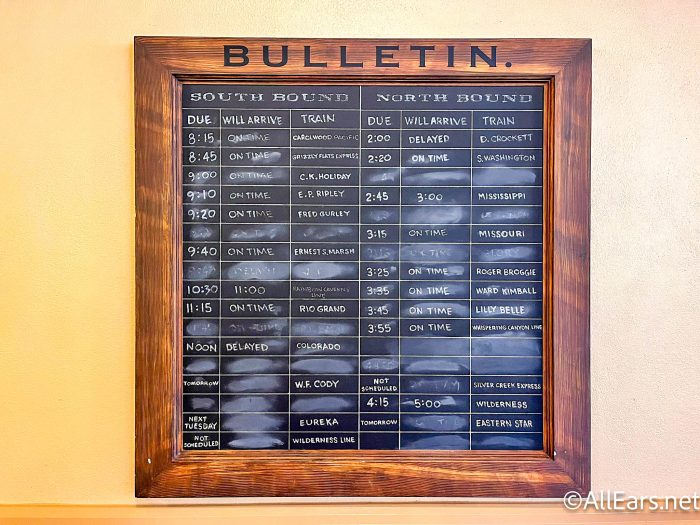 BULLETIN.
SOUTH BOUND NORTH BOUND
DUE WILL ARRIVE TRAIN DUE WILL ARRIVE TRAIN
8:15 ON TIME CAROLWOOD PACIFIC 2:00 DELAYED D. CROCKETT
8:45 ON TIME GRIZZLY FLATS EXPRESS 2:20 ON TIME S. WASHINGTON
9:00 ON TIME C.K. HOLIDAY
9:10 ON TIME E.P. RIPLEY 2:45 3:00 MISSISSIPPI
9:20 ON TIME FRED GURLEY
ON TIME 3:15 ON TIME MISSOURI
9:40 ON TIME ERNEST S. MARSH ON TIME
3:25 ON TIME ROGER BROGGIE
10:30 11:00 RAINBOW CAVERNS LINE 3:35 ON TIME WARD KIMBALL
11:15 ON TIME RIO GRAND 3:45 ON TIME LILLY BELLE
ON TIME 3:55 ON TIME WHISPERING CANYON LINE
NOON DELAYED COLORADO
TOMORROW W.F. CODY NOT SCHEDULED SILVER CREEK EXPRESS
4:15 5:00 WILDERNESS
NEXT TUESDAY EUREKA TOMORROW EASTERN STAR
NOT SCHEDULED WILDERNESS LINE
©AllEars.net